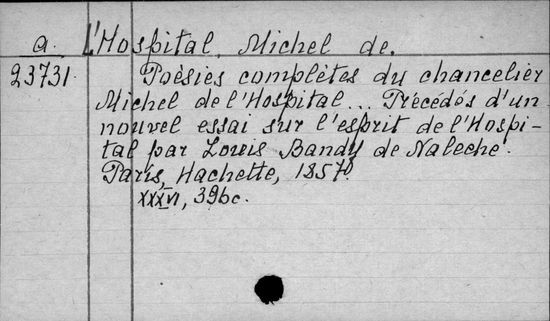 a. L'Hospital, Michel de.
23731. Poèsies complètes du chancelier
Michel de l'Hospital... Précédés d'un
nouvel essai sur l'esprit de l'Hospi-
tal par Louis Bandy de Naleche.
Paris, Hachette, 1857.
XXXVI, 396 c.